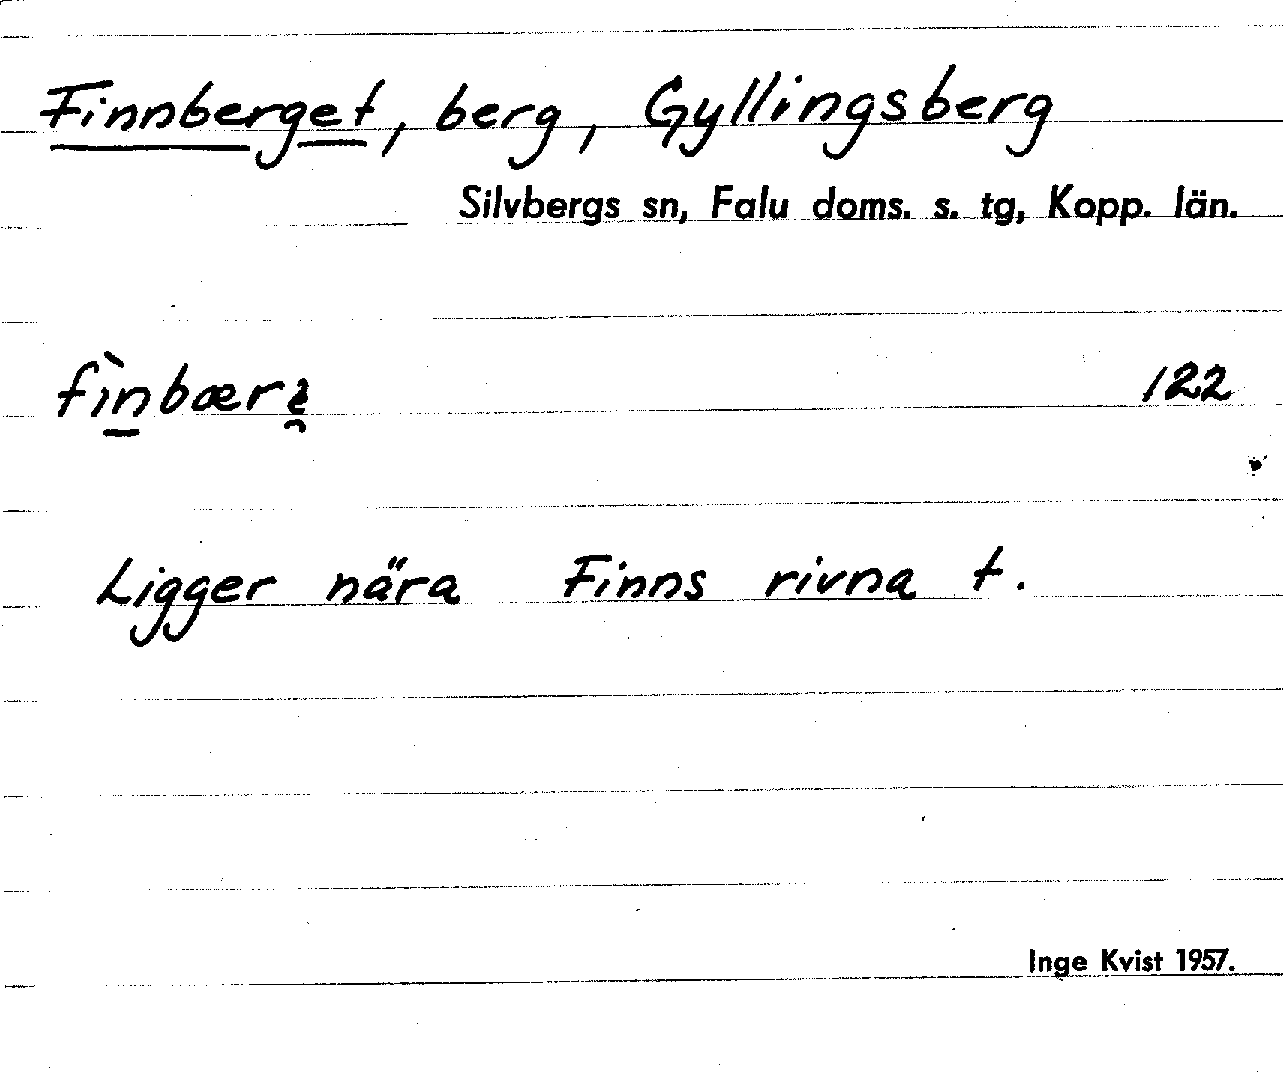 Finnberget, berg, Gyllingsberg
Silvbergs sn, Falu doms. s. tg, Kopp. län.
fìn̠bærə̯ 122
Ligger nära Finns rivna t.
Inge Kvist 1957.